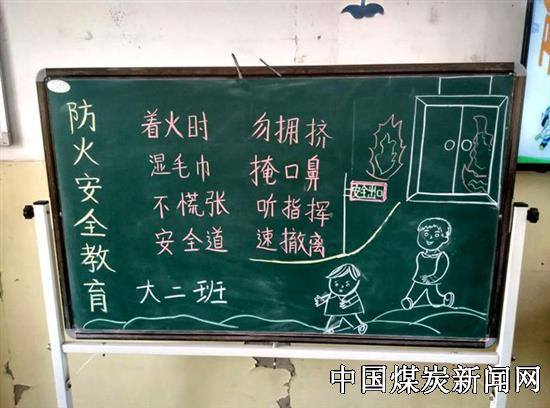 防火安全教育
着火时 勿拥挤
湿毛巾 掩口鼻
不慌张 听指挥
安全道 速撤离
大二班
安全出口
中国煤炭新闻网